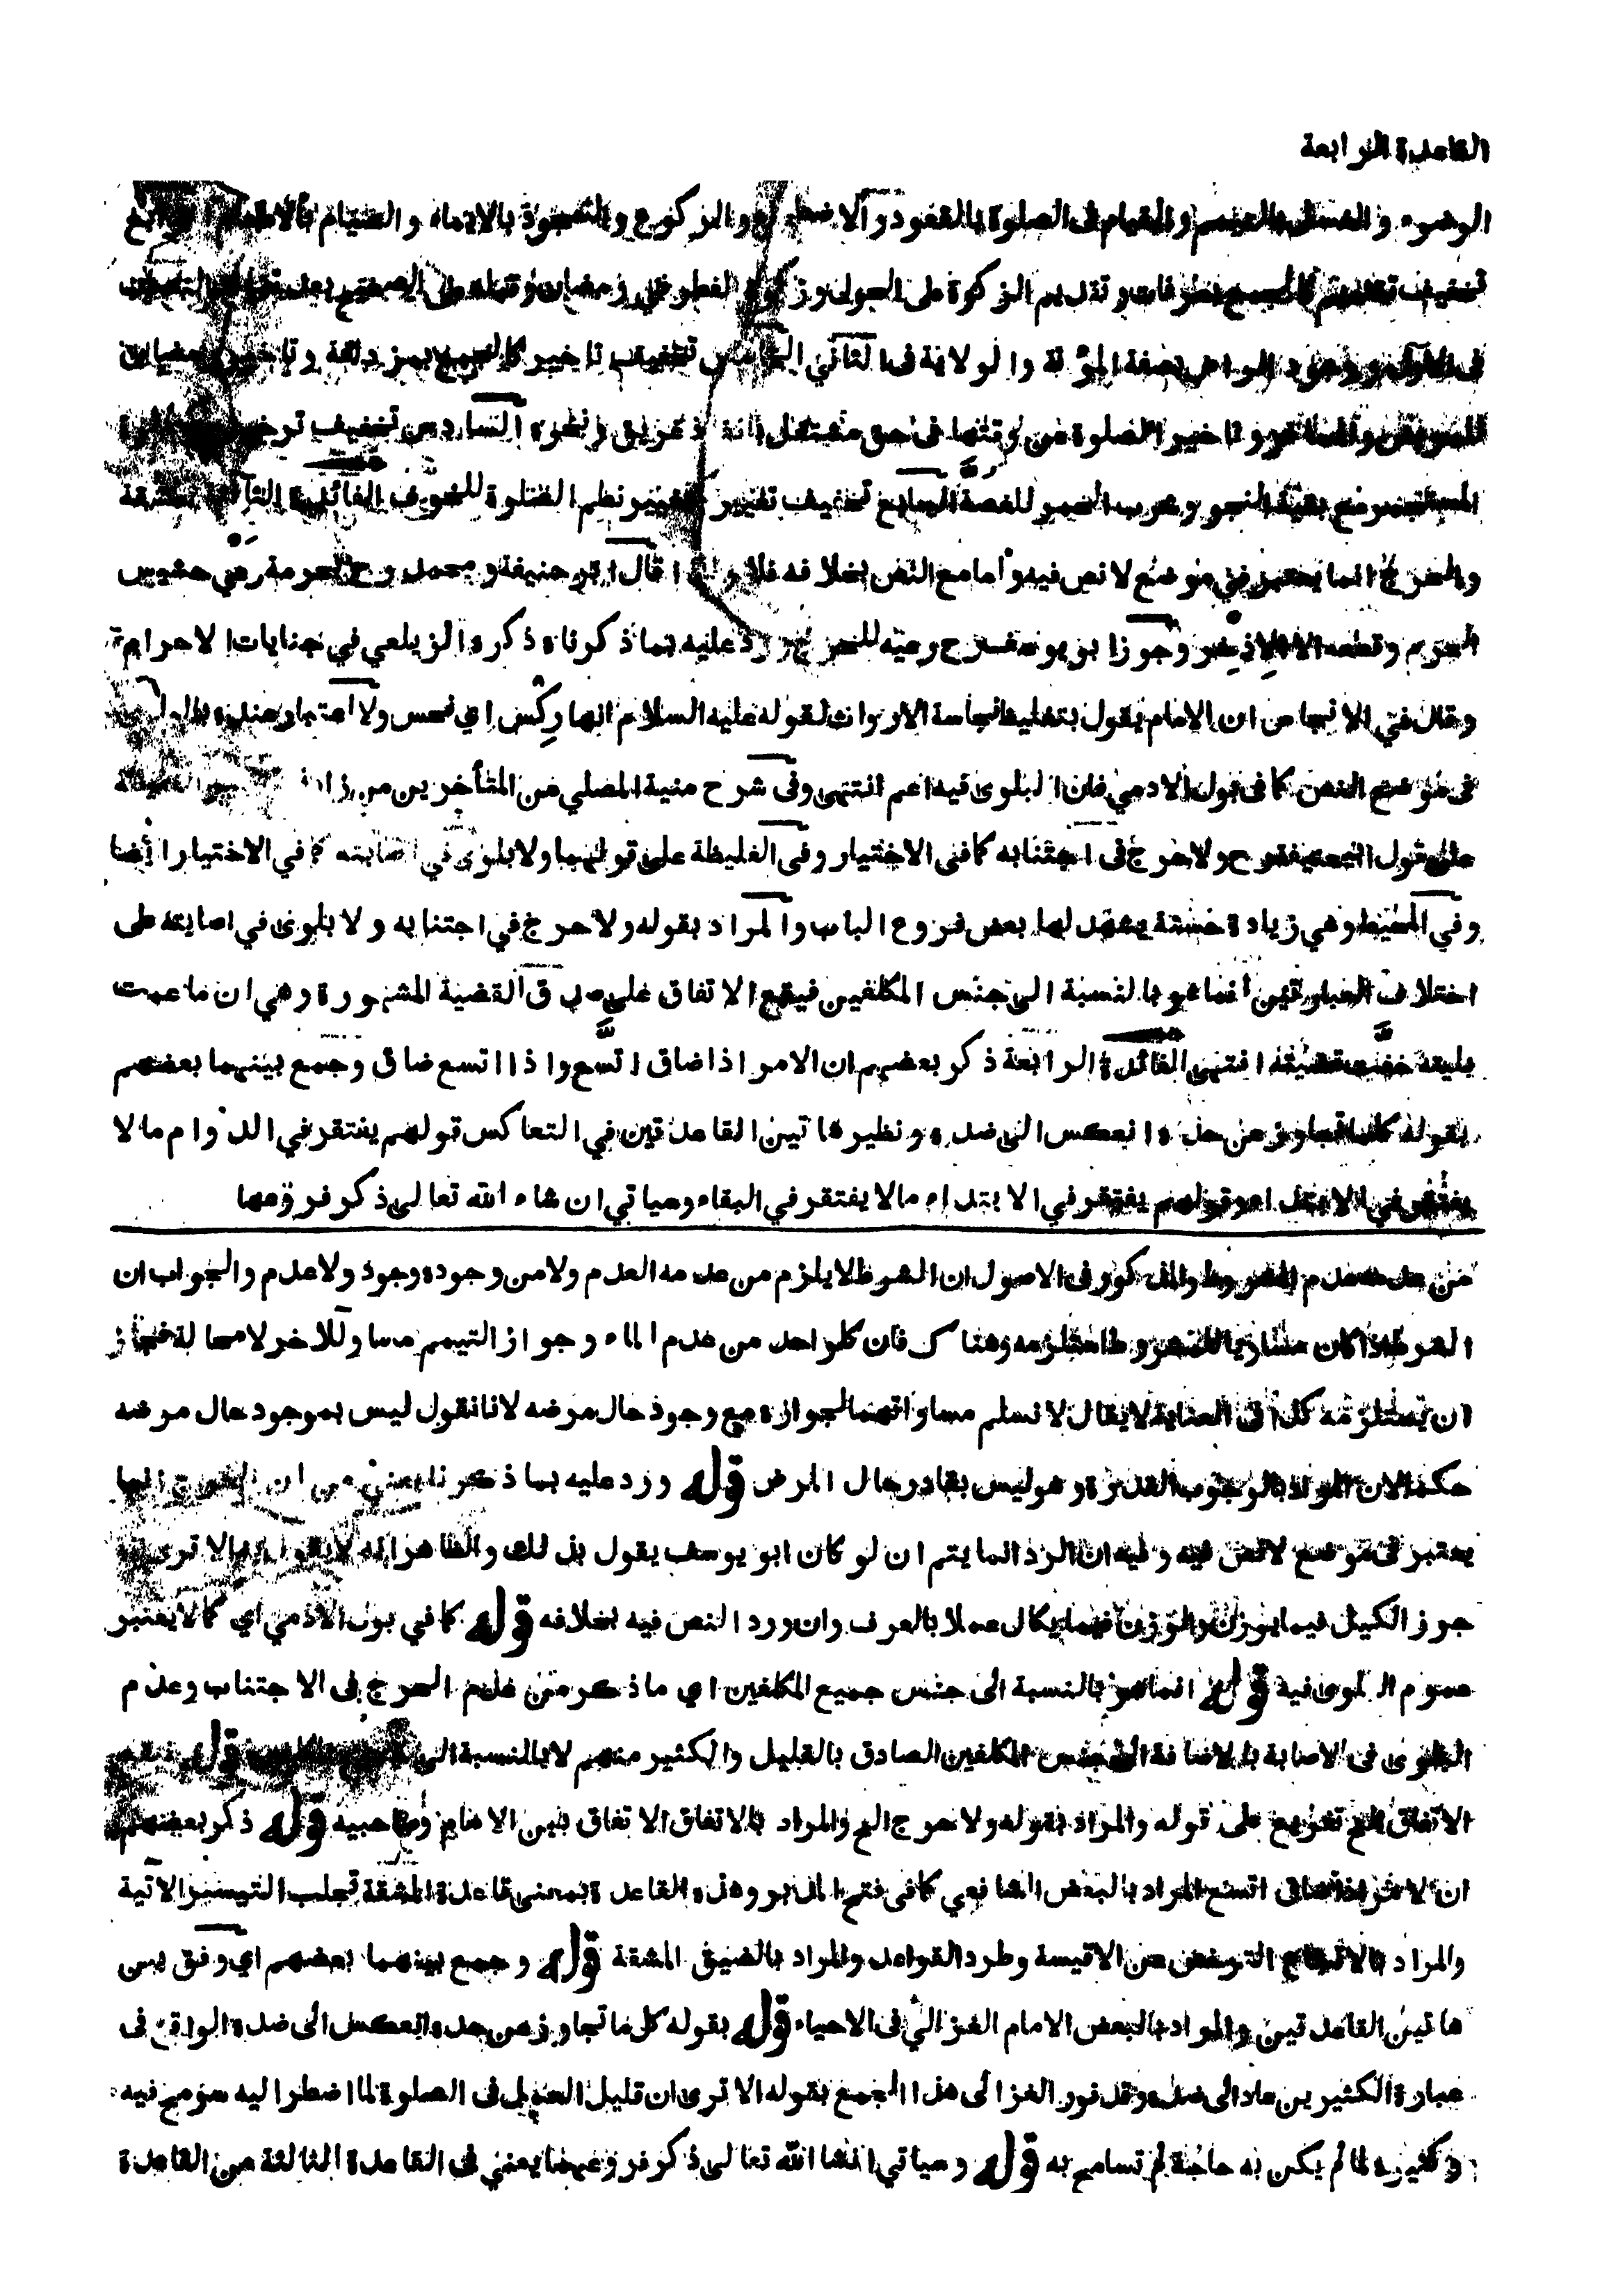 القاعدة الرابعة
الوضوء والغسل بالتيمم والقيام فى الصلوة بالقعود والاضطجاع والركوع والسجود بالايماء والصيام بالاطعام الرابع
تخفيف تقديم كالجمع بعرفات وتقديم الزكوة على الحول وزكوة الفطر فى رمضان وقبله على الصحيح بعد
فى الاول ووجود الراس بصفة المؤنة والولاية فى الثاني الخامس تخفيف تاخير كالجمع بمزدلفة وتاخير رمضان
للمريض والمسافر وتاخير الصلوة عن وقتها فى حق مشتغل بانقاذ غريق ونحوه السادس تخفيف ترخيص
المستجمر مع بقية النجو وشرب الخمر للغصة السابع تخفيف تغيير كتغيير نظم الصلوة للخوف الفائدة الثالثة المشقة
والحرج انما يعتبر في موضع لا نص فيه وأما مع النص بخلافه فلا ولذا قال ابو حنيفة ومحمد رح بحرمة رعي حشيش
الحرم وقطعه الا الإذخر وجوز ابو يوسف رح رعيه للحرج ورد عليه بما ذكرناه ذكره الزيلعي في جنايات الاحرام
وقال في الانجاس ان الامام يقول بتغليظ نجاسة الارواث لقوله عليه السلام انها رِكْس اي نجس ولا اعتبار عنده بالبلوى
فى موضع النص كما فى بول الادمي فان البلوى فيه اعم انتهى وفى شرح منية المصلي من المتأخرين من زاد
على قول ابى حنيفة رح ولا حرج فى اجتنابه كما فى الاختيار وفى الغليظة على قولهما ولا بلوى في اصابته كما في الاختيار أيضا
وفي المحيط وهي زيادة حسنة يشهد لها بعض فروع الباب والمراد بقوله ولا حرج في اجتنابه ولا بلوى في اصابته على
اختلاف العبارتين انما هو بالنسبة الى جنس المكلفين فيقع الاتفاق على صدق القضية المشهورة وهي ان ما عمت
بليته خفت قضيته انتهى الفائدة الرابعة ذكر بعضهم ان الامر اذا ضاق اتسع واذا اتسع ضاق وجمع بينهما بعضهم
بقوله كلما تجاوز عن حده انعكس الى ضده ونظير هاتين القاعدتين في التعاكس قولهم يغتفر في الدوام ما لا
يغتفر في الابتداء وقولهم يغتفر في الابتداء ما لا يغتفر في البقاء وسياتي ان شاء الله تعالى ذكر فروعها
من عدمه عدم المشروط والمذكور فى الاصول ان الشرط لا يلزم من عدمه العدم ولا من وجوده وجود ولا عدم والجواب ان
الشرط اذا كان مساويا للمشروط استلزمه وهنا كذلك فان كل واحد من عدم الماء وجواز التيمم مساو للاخر لا محالة فجاز
ان يستلزمه كذا فى العناية لا يقال لا نسلم مساواتهما لجوازه مع وجود حال مرضه لانا نقول ليس بموجود حال مرضه
حكما لان المراد بالوجود القدرة وهو ليس بقادر حال المرض قوله ورد عليه بما ذكرناه يعني من ان الحرج انما
يعتبر فى موضع لا نص فيه وفيه ان الرد انما يتم ان لو كان ابو يوسف يقول بذلك والظاهر انه لا يقول به الا ترى
جوز الكيل فيما يوزن والوزن فيما يكال عملا بالعرف وان ورد النص فيه بخلافه قوله كما في بول الادمي اي كما لا يعتبر
عموم البلوى فيه قوله انما هو بالنسبة الى جنس جميع المكلفين اي ما ذكر من عدم الحرج فى الاجتناب وعدم
البلوى فى الاصابة بالاضافة الى جنس المكلفين الصادق بالقليل والكثير منهم لا بالنسبة الى جميع المكلفين قوله فيقع
الاتفاق الخ تفريع على قوله والمراد بقوله ولا حرج الخ والمراد بالاتفاق الاتفاق بين الامام وصاحبيه قوله ذكر بعضهم
ان الامر اذا ضاق اتسع المراد بالبعض الشافعي كما فى فتح المدبر وهذه القاعدة بمعنى قاعدة المشقة تجلب التيسير الآتية
والمراد بالاتساع الترخص عن الاقيسة وطرد القواعد والمراد بالضيق المشقة قوله وجمع بينهما بعضهم اي وفق بين
هاتين القاعدتين والمراد بالبعض الامام الغزالي فى الاحياء قوله بقوله كل ما تجاوز عن حده انعكس الى ضده الواقع فى
عبارة الكثيرين عاد الى ضده وقد نور الغزالى هذا الجمع بقوله الا ترى ان قليل العمل فى الصلوة لما اضطر اليه سومح فيه
وكثيره لما لم يكن به حاجة لم تسامح به قوله وسياتي انشا الله تعالى ذكر فروعهما يعني فى القاعدة الثالثة من القاعدة